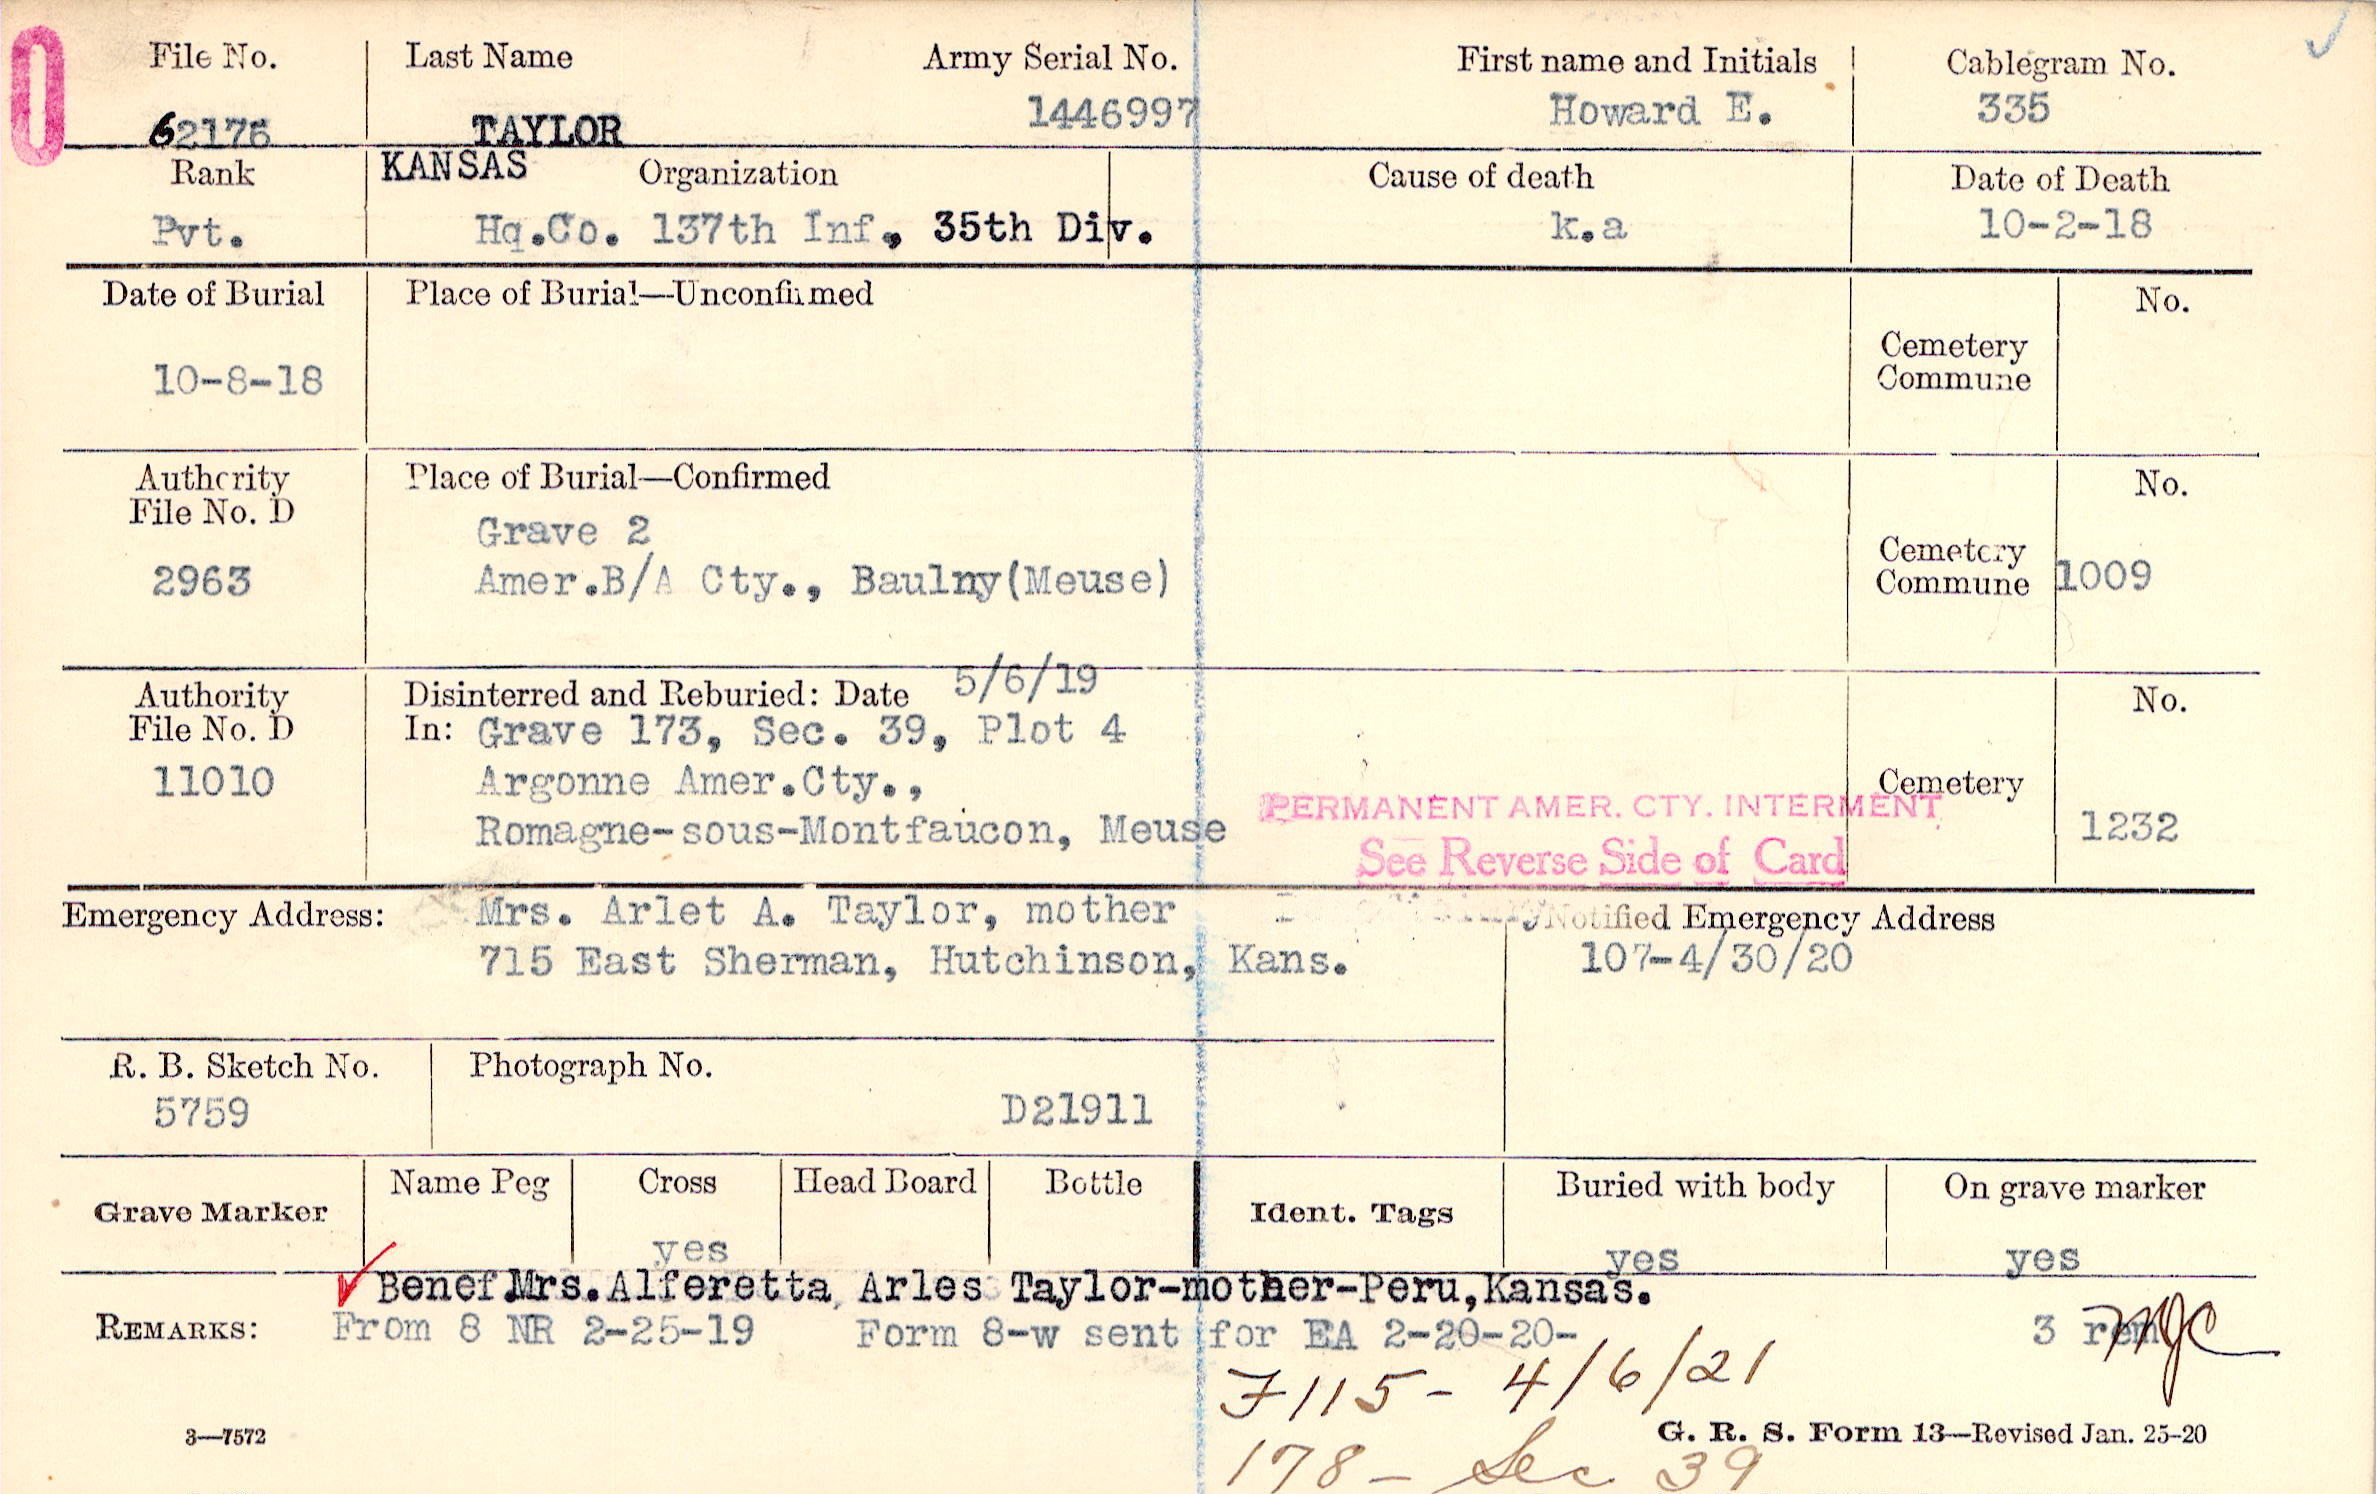 File No. Last Name Army Serial No. First name and Initials Cablegram No.
62176 TAYLOR 1446997 Howard E. 335
Rank KANSAS Organization Cause of death Date of Death
Pvt. Hq.Co. 137th Inf., 35th Div. k.a 10-2-18
Date of Burial Place of Burial—Unconfirmed No.
10-8-18 Cemetery
Commune
Authority Place of Burial—Confirmed No.
File No. D Grave 2
2963 Amer.B/A Cty., Baulny(Meuse) Cemetery
Commune 1009
Authority Disinterred and Reburied: Date 5/6/19 No.
File No. D In: Grave 173, Sec. 39, Plot 4
11010 Argonne Amer.Cty., Cemetery
PERMANENT AMER. CTY. INTERMENT
Romagne-sous-Montfaucon, Meuse 1232
See Reverse Side of Card
Emergency Address: Mrs. Arlet A. Taylor, mother Notified Emergency Address
715 East Sherman, Hutchinson, Kans. 107-4/30/20
R. B. Sketch No. Photograph No.
5759 D21911
Grave Marker Name Peg Cross Head Board Bottle Ident. Tags Buried with body On grave marker
yes yes yes
Benef.Mrs.Alferetta Arles Taylor-mother-Peru,Kansas.
REMARKS: From 8 NR 2-25-19 Form 8-w sent for EA 2-20-20- 3 rem
F115- 4/6/21
3—7572 G. R. S. Form 13—Revised Jan. 25-20
178 - Sec 39